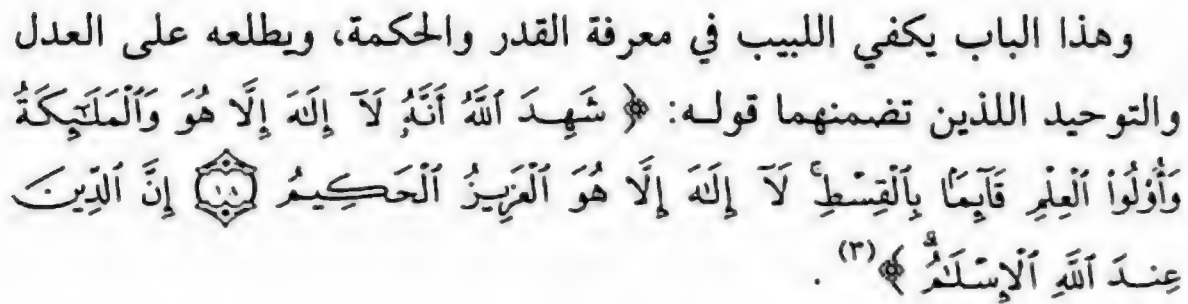 وهذا الباب يكفي اللبيب في معرفة القدر والحكمة، ويطلعه على العدل
والتوحيد اللذين تضمنهما قوله: ﴿ شَهِدَ ٱللَّهُ أَنَّهُۥ لَآ إِلَٰهَ إِلَّا هُوَ وَٱلْمَلَٰٓئِكَةُ
وَأُو۟لُوا۟ ٱلْعِلْمِ قَآئِمًۢا بِٱلْقِسْطِ ۚ لَآ إِلَٰهَ إِلَّا هُوَ ٱلْعَزِيزُ ٱلْحَكِيمُ ۝١٨ إِنَّ ٱلدِّينَ
عِندَ ٱللَّهِ ٱلْإِسْلَٰمُ ۗ ﴾(٣) .